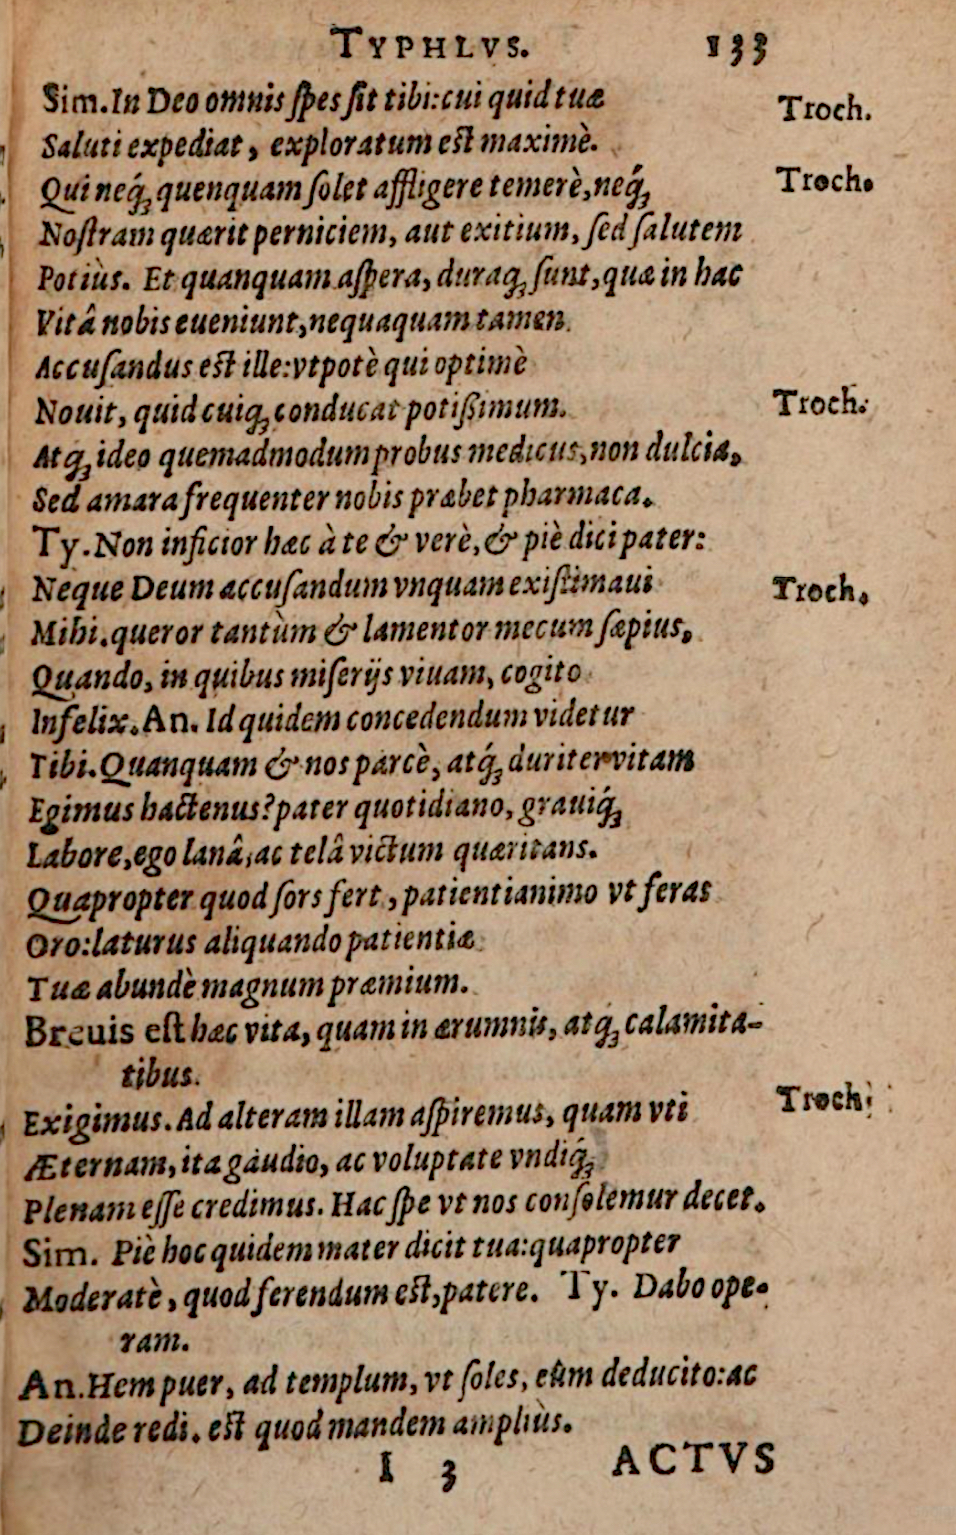 TYPHLVS. 133
Sim. In Deo omnis ſpes ſit tibi: cui quid tuæ Troch.
Saluti expediat, exploratum eſt maximè.
Qui neq́ꝫ quenquam ſolet affligere temerè, neq́ꝫ Troch.
Noſtram quærit perniciem, aut exitium, ſed ſalutem
Potiùs. Et quanquam aſpera, duraqꝫ ſunt, quæ in hac
Vitâ nobis eueniunt, nequaquam tamen
Accuſandus eſt ille: vtpotè qui optimè
Nouit, quid cuiqꝫ conducat potißimum. Troch.
Atqꝫ ideo quemadmodum probus medicus, non dulcia,
Sed amara frequenter nobis præbet pharmaca.
Ty. Non inficior hæc à te & verè, & piè dici pater:
Neque Deum accuſandum vnquam exiſtimaui Troch.
Mihi. queror tantùm & lamentor mecum ſæpius,
Quando, in quibus miſerijs viuam, cogito
Infelix. An. Id quidem concedendum videtur
Tibi. Quanquam & nos parcè, atq́ꝫ duriter vitam
Egimus hactenus? pater quotidiano, grauiq́ꝫ
Labore, ego lanâ, ac telâ victum quæritans.
Quapropter quod ſors fert, patienti animo vt feras
Oro: laturus aliquando patientiæ
Tuæ abundè magnum præmium.
Breuis eſt hæc vita, quam in ærumnis, atqꝫ calamita-
tibus.
Exigimus. Ad alteram illam aſpiremus, quam vti Troch.
Æternam, ita gaudio, ac voluptate vndiq́ꝫ
Plenam eſſe credimus. Hac ſpe vt nos conſolemur decet.
Sim. Piè hoc quidem mater dicit tua: quapropter
Moderatè, quod ferendum eſt, patere. Ty. Dabo ope-
ram.
An. Hem puer, ad templum, vt ſoles, eũm deducito: ac
Deinde redi. eſt quod mandem ampliùs.
I 3 ACTVS